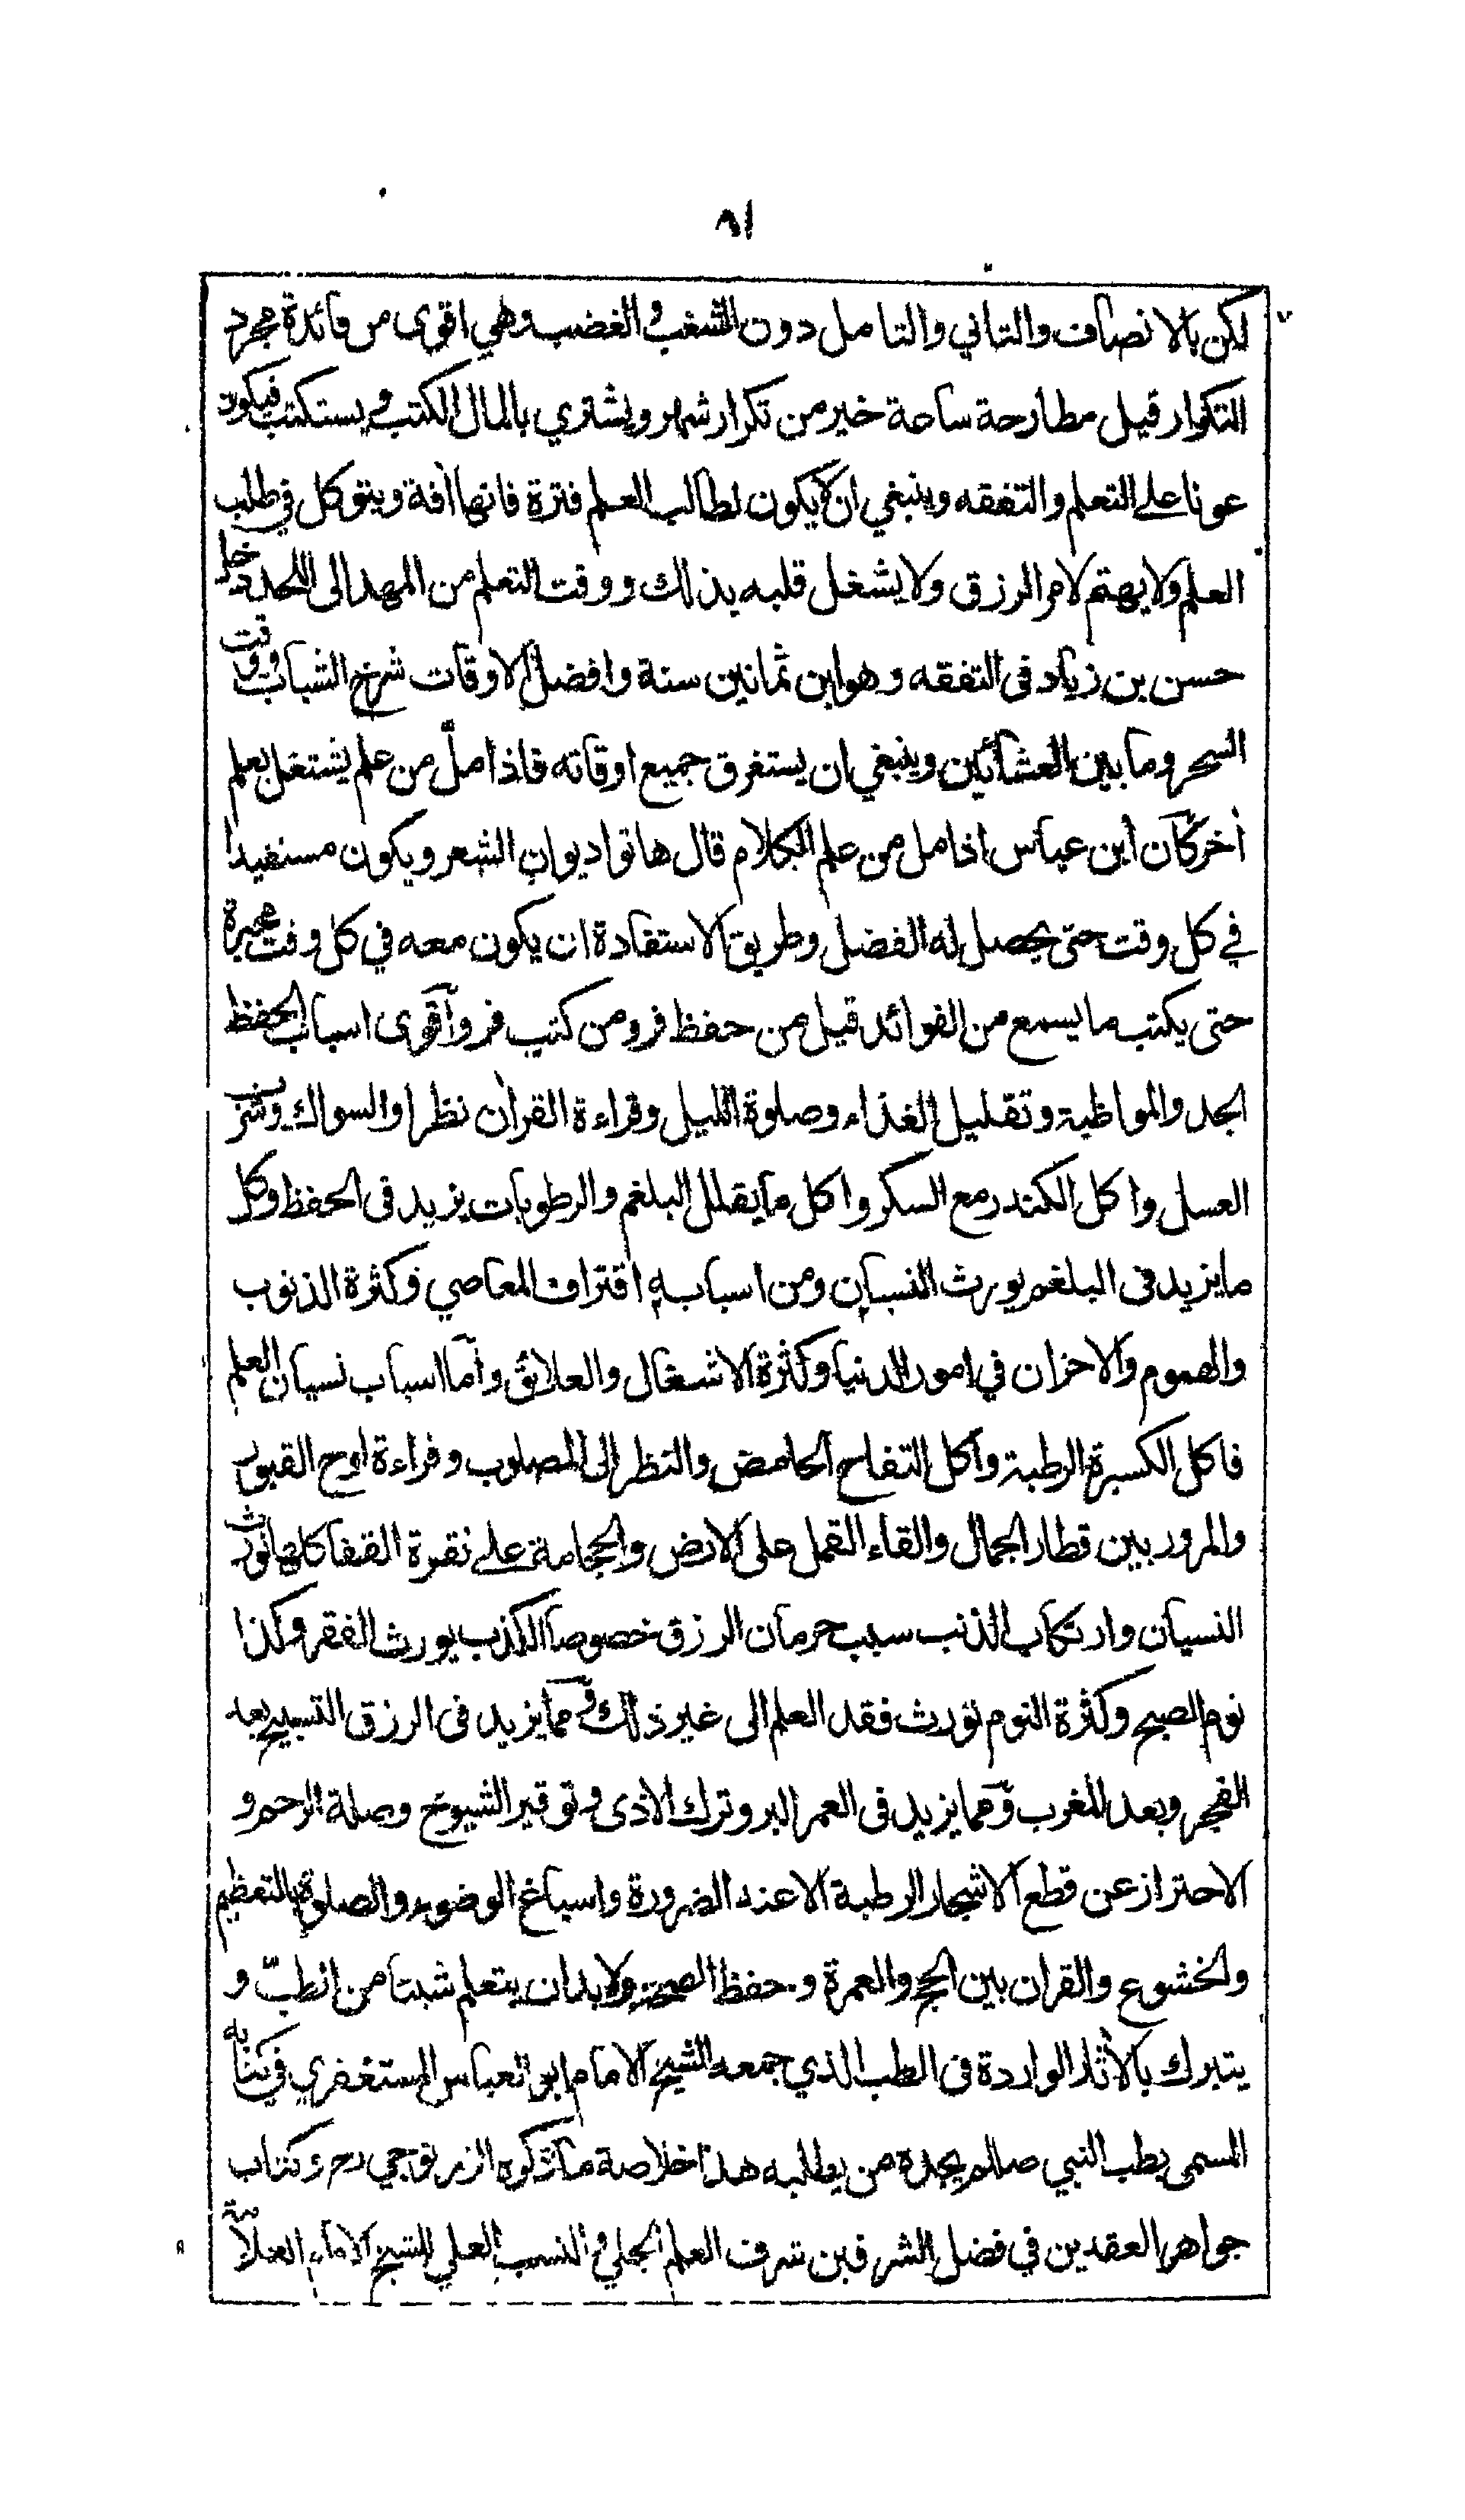 ٨١
لكن بالانصاف والتاني والتامل دون الشغب والغضب وهي اقوى من فائدة مجرد
التكرار قيل مطارحة ساعة خير من تكرار شهر ويشتري بالمال الكتب ويستكتب فيكون
عونا على التعلم والتفقه وينبغي ان لا يكون لطالب العلم فترة فانها افة ويتوكل في طلب
العلم ولا يهتم لامر الرزق ولا يشغل قلبه بذلك ووقت التعلم من المهد الى اللحد دخل
حسن بن زياد في التفقه وهو ابن ثمانين سنة وافضل الاوقات شرخ الشباب ووقت
السحر وما بين العشائين وينبغي ان يستغرق جميع اوقاته فاذا ملّ من علم يشتغل بعلم
أخر كان ابن عباس اذا مل من علم الكلام قال هاتوا ديوان الشعر ويكون مستفيدا
في كل وقت حتى يحصل له الفضل وطريق الاستفادة ان يكون معه في كل وقت محبرة
حتى يكتب ما يسمع من الفوائد قيل من حفظ فر ومن كتب قر وأقوى اسباب الحفظ
الجد والمواظبة وتقليل الغذاء وصلوة الليل وقراءة القران نظرا والسواك وشرب
العسل واكل الكندر مع السكر واكل ما يقلل البلغم والرطوبات يزيد في الحفظ وكل
ما يزيد في البلغم يورث النسيان ومن اسبابه اقتراف المعاصي وكثرة الذنوب
والهموم والاحزان في امور الدنيا وكثرة الاشغال والعلائق وأما اسباب نسيان العلم
فاكل الكسبرة الرطبة واكل التفاح الحامض والنظر الى المصلوب وقراءة لوح القبور
والمرور بين قطار الجمال والقاء القمل على الارض والحجامة على نقرة القفا كلها تورث
النسيان وارتكاب الذنب سبب حرمان الرزق خصوصا الكذب يورث الفقر وكذا
نوم الصبح وكثرة النوم تورث فقد العلم الى غير ذلك ومما يزيد في الرزق التسبيح بعد
الفجر وبعد المغرب ومما يزيد في العمر البر وترك الاذى وتوقير الشيوخ وصلة الرحم و
الاحتراز عن قطع الاشجار الرطبة الا عند الضرورة واسباغ الوضوء والصلوة بالتعظيم
والخشوع والقران بين الحج والعمرة و حفظ الصحة ولا بد ان يتعلم شيئا من الطبّ و
يتبرك بالأثار الواردة في الطب الذي جمعه الشيخ الامام ابو العباس المستغفري في كتابه
المسمى بطب النبي صللم يجده من يطلبه هذا خلاصة ما ذكره الزرنوجي رح وكتاب
جواهر العقدين في فضل الشرفين شرف العلم الجلي والنسب العلي للشيخ الامام العلّامة